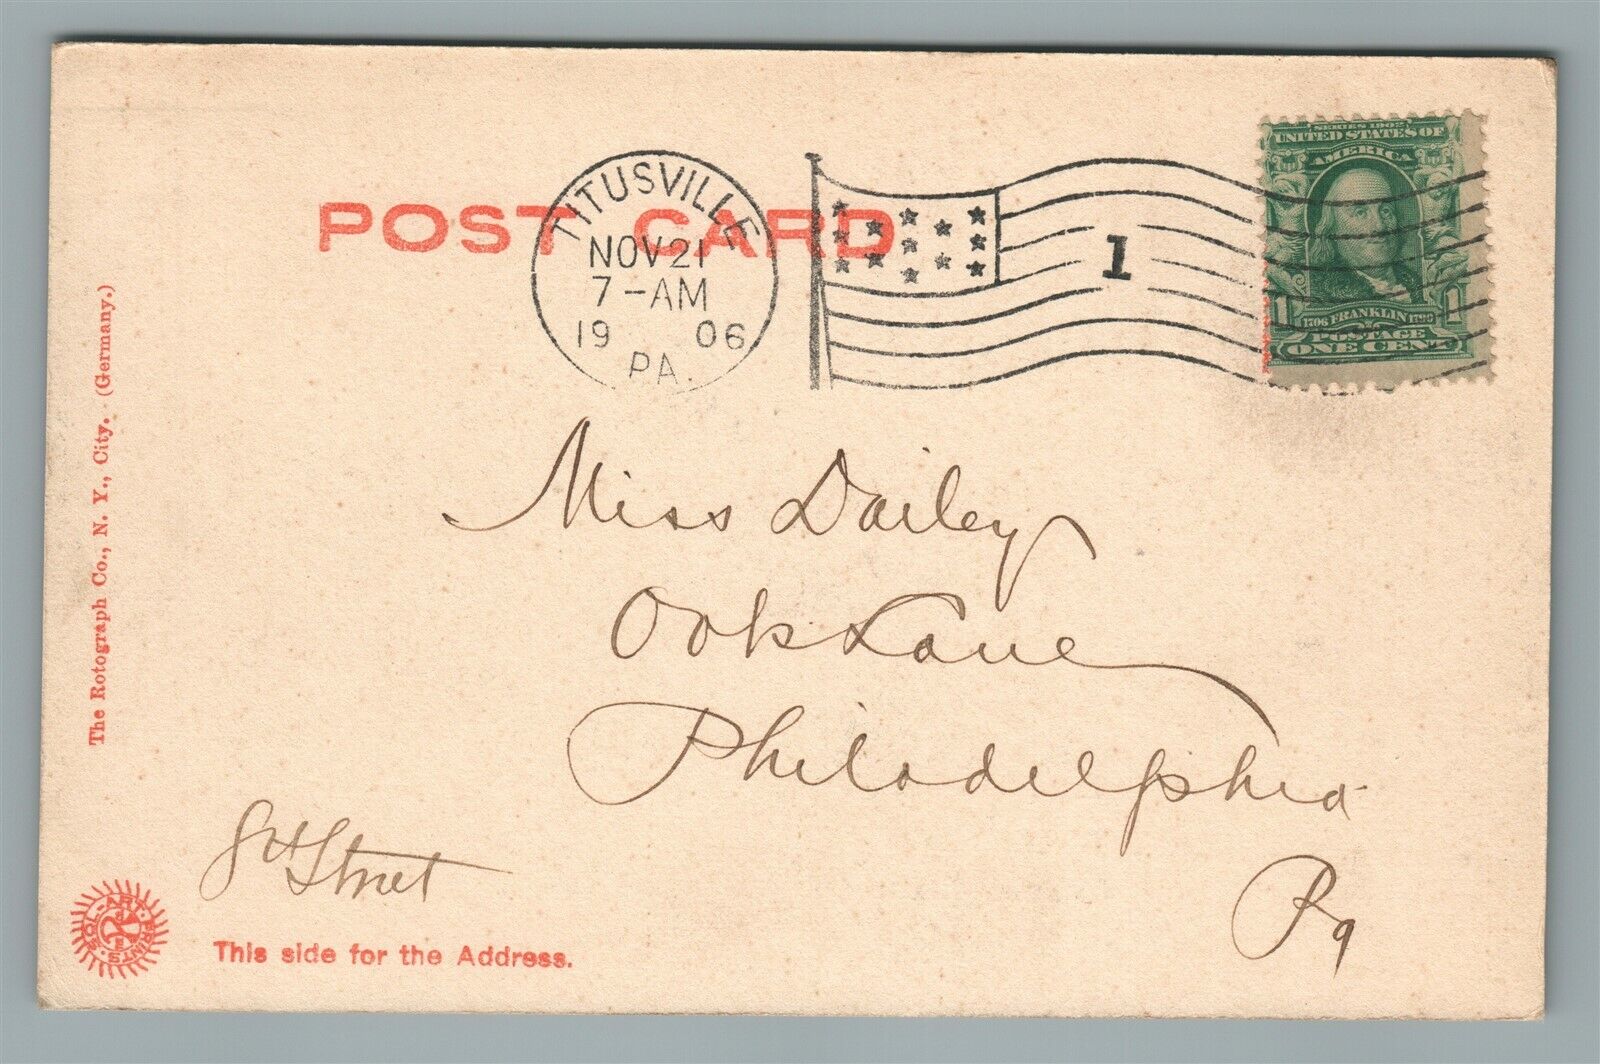 POST CARD
TITUSVILLE
NOV 21
7-AM
19 06
PA.
1
SERIES 1902
UNITED STATES OF
AMERICA
1 1
1706 FRANKLIN 1790
POSTAGE
ONE CENT
The Rotograph Co., N. Y., City. (Germany.)
Miss Dailey
Oak Lane
Philadelphia
Pa
8th Street
SOL-ART PRINTS
This side for the Address.